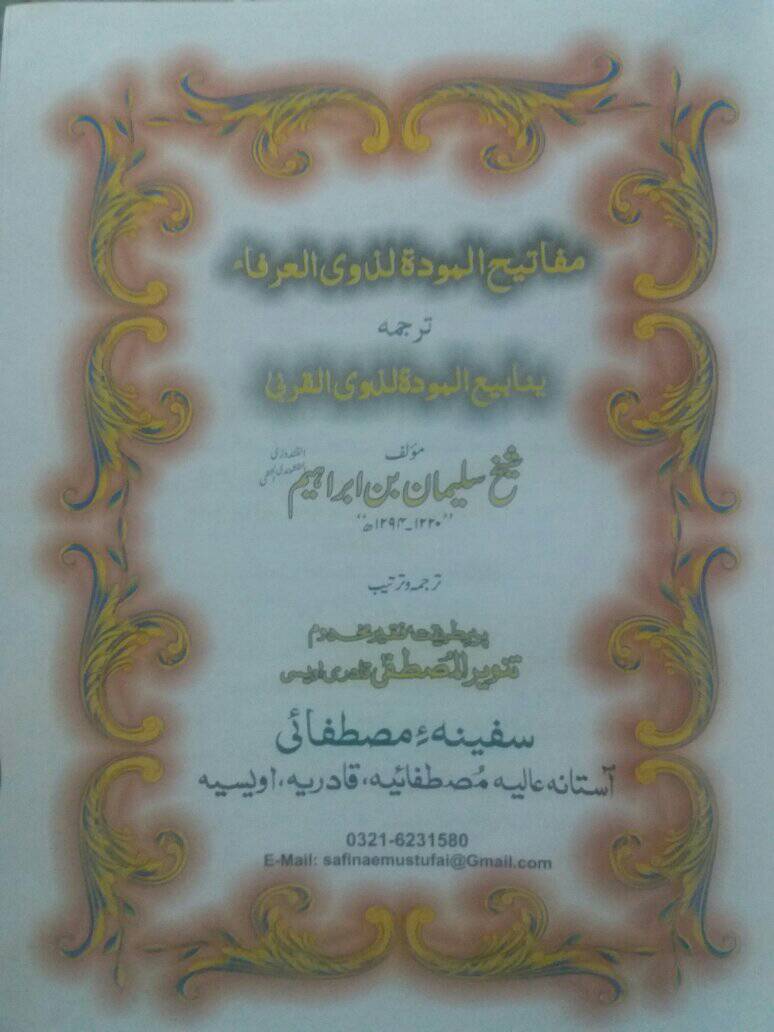 مفاتیح المودة لذوی العرفاء
ترجمہ
ینابیع المودة لذوی القربیٰ
مؤلف
شیخ سلیمان بن ابراہیم القندوزی
"۱۲۲۰۔۱۲۹۴ھ"
ترجمہ و ترتیب
پیر طریقت فقیر مخدوم
تنویر المُصطفٰی قادری اویسی
سفینہءِ مصطفائی
آستانہ عالیہ مُصطفائیہ، قادریہ، اویسیہ
0321-6231580
E-Mail: safinaemustufai@Gmail.com